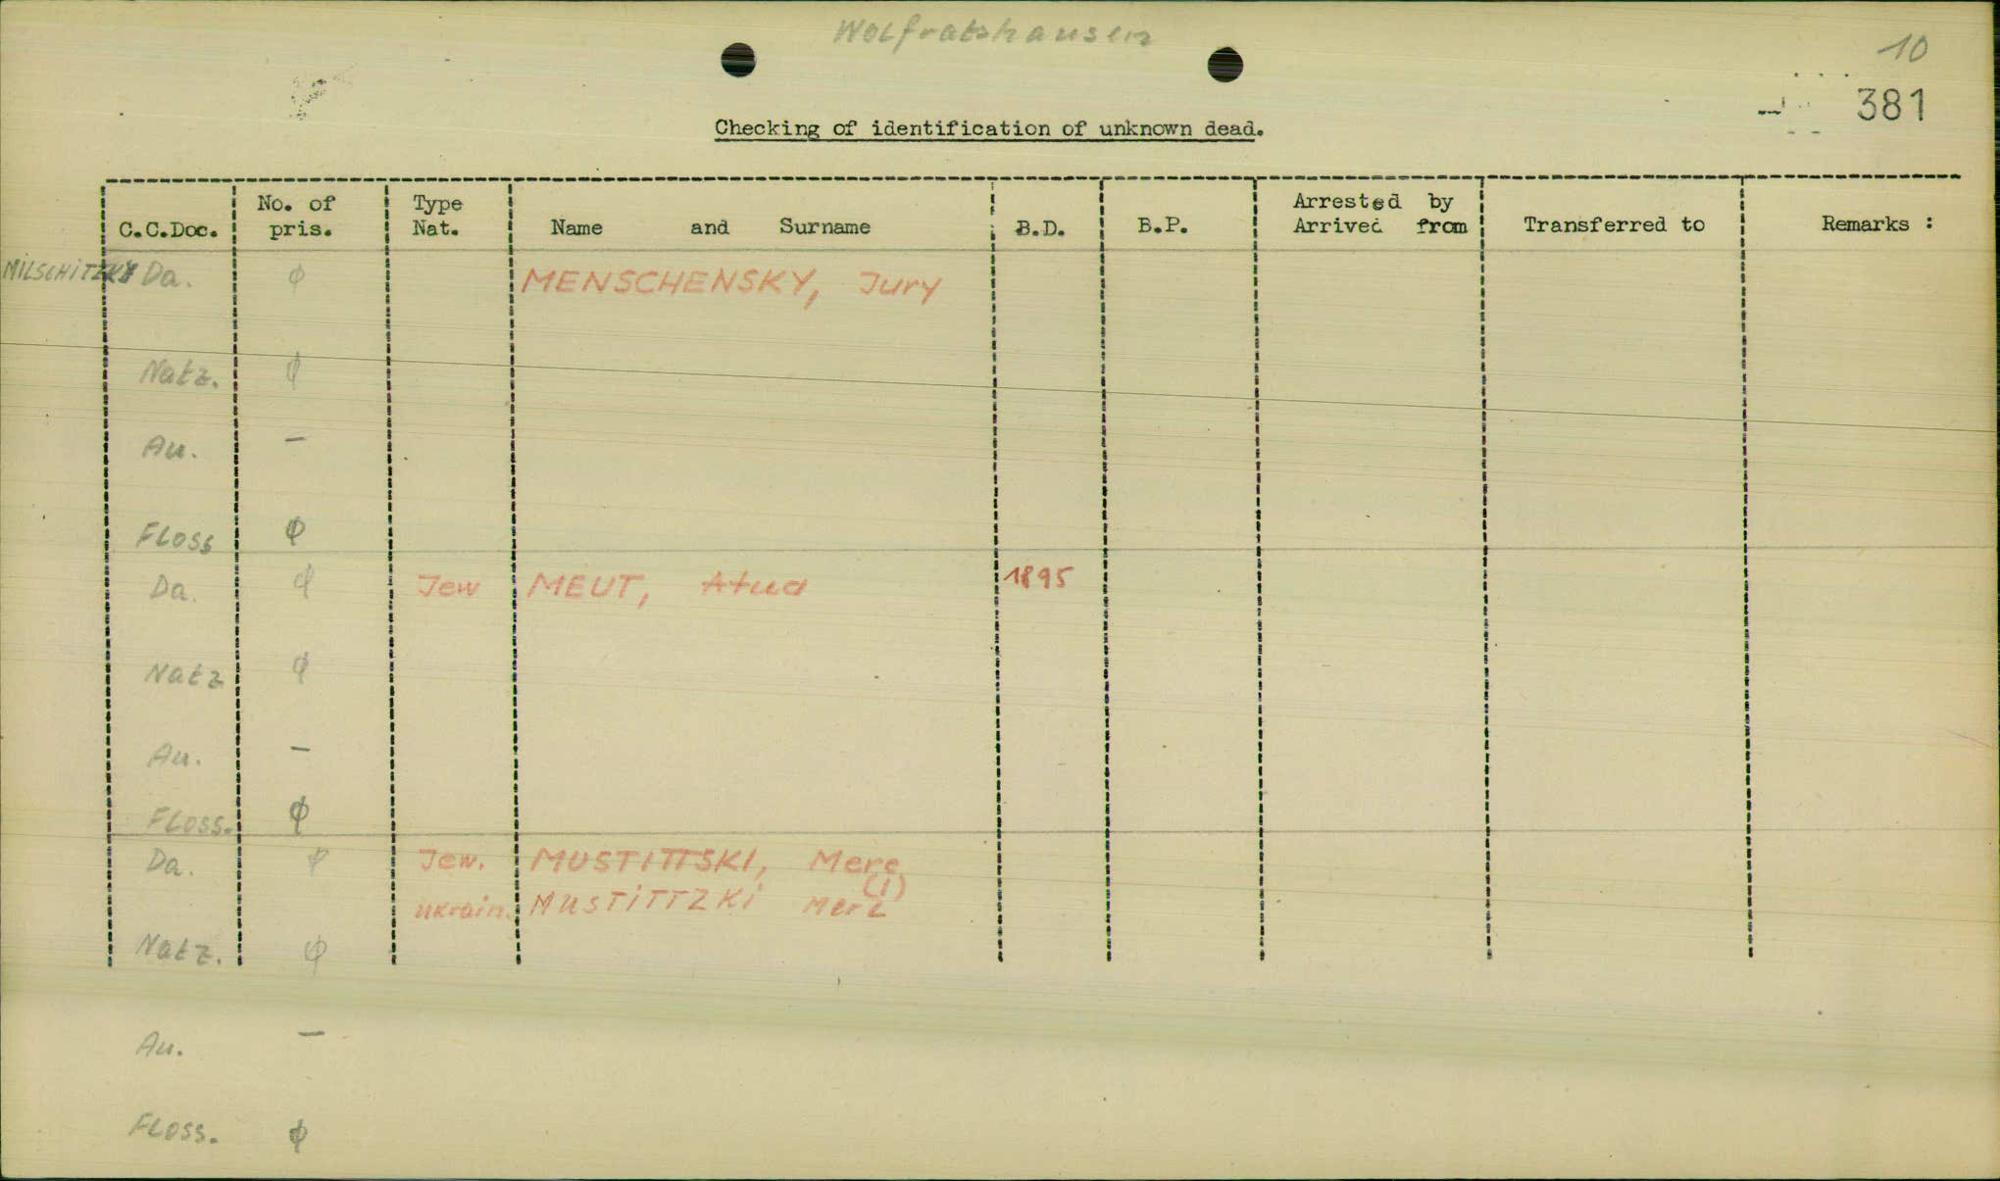 Wolfratshausen
10
381
Checking of identification of unknown dead.
C.C.Doc. No. of pris. Type Nat. Name and Surname B.D. B.P. Arrested by Arrived from Transferred to Remarks :
MILSCHITZKY Da. φ MENSCHENSKY, Jury
Natz. φ
Au. –
FLOSS φ
Da. φ Jew MEUT, Atud 1895
Natz φ
Au. –
FLOSS. φ
Da. φ Jew. MUSTITTSKI, Mere
(i)
Ukrain. MUSTITTZKI Merz
Natz. φ
Au. –
FLOSS. φ